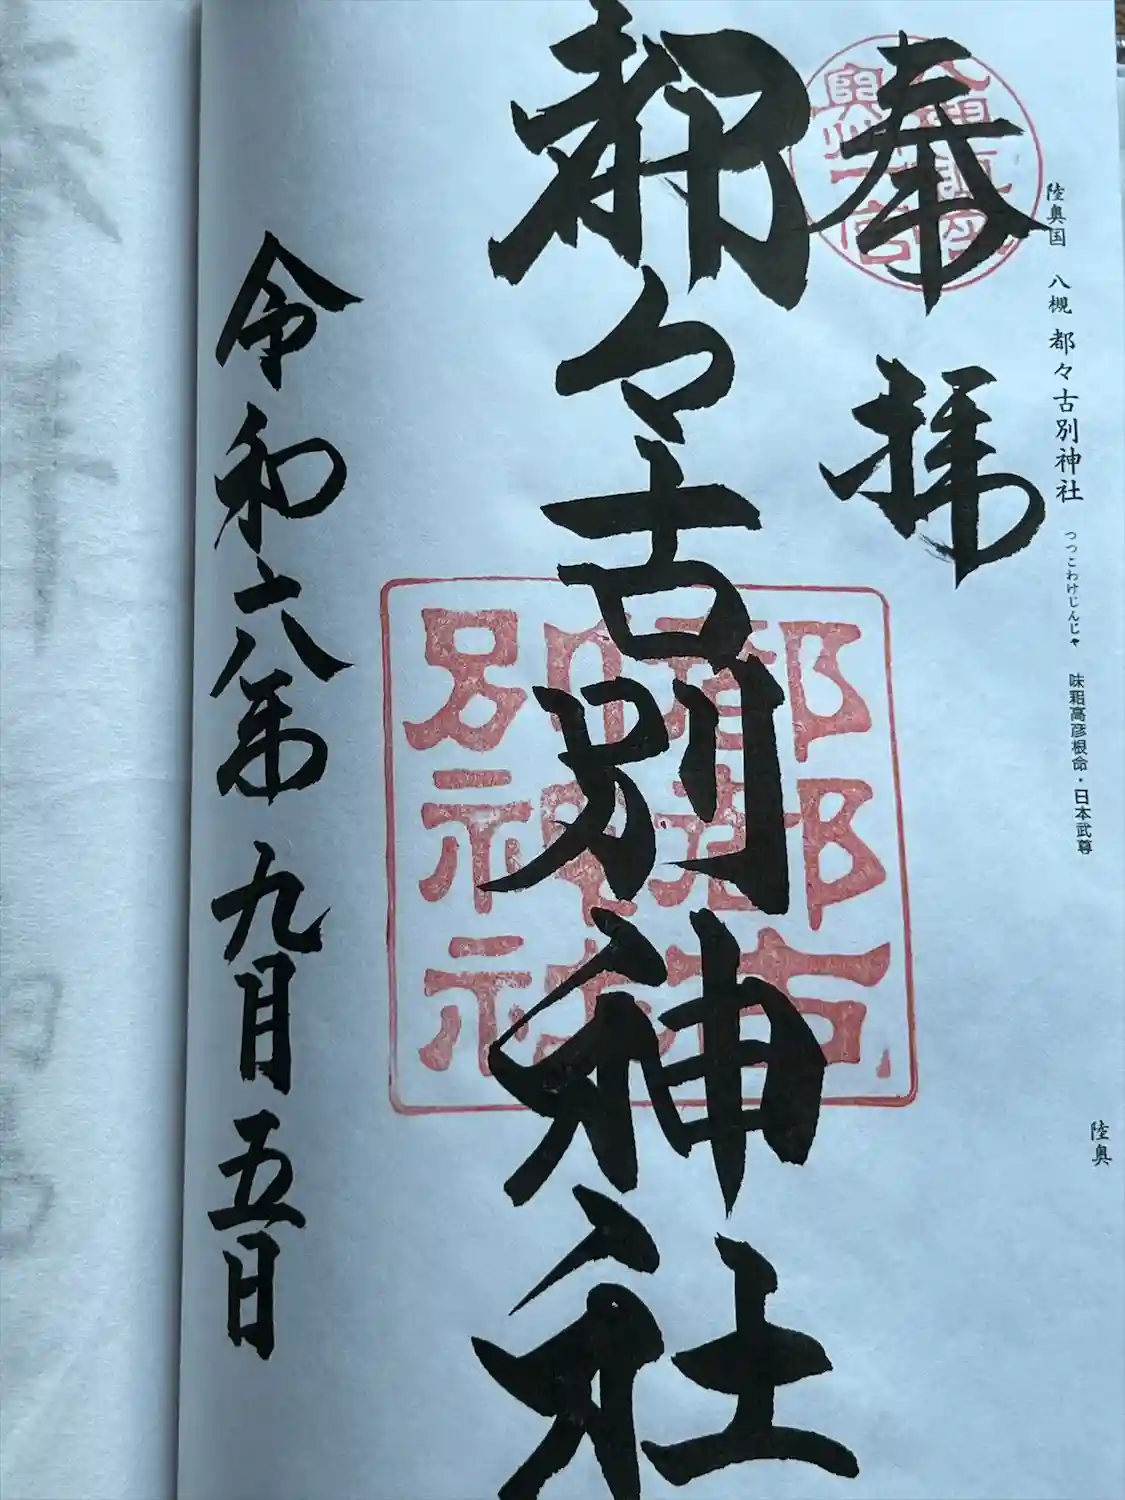 陸奥国 八槻 都々古別神社 つつこわけじんじゃ 味耜高彦根命・日本武尊
陸奥
奉拝
奥州一宮
都々古別神社
都都古別神社
令和六年九月五日